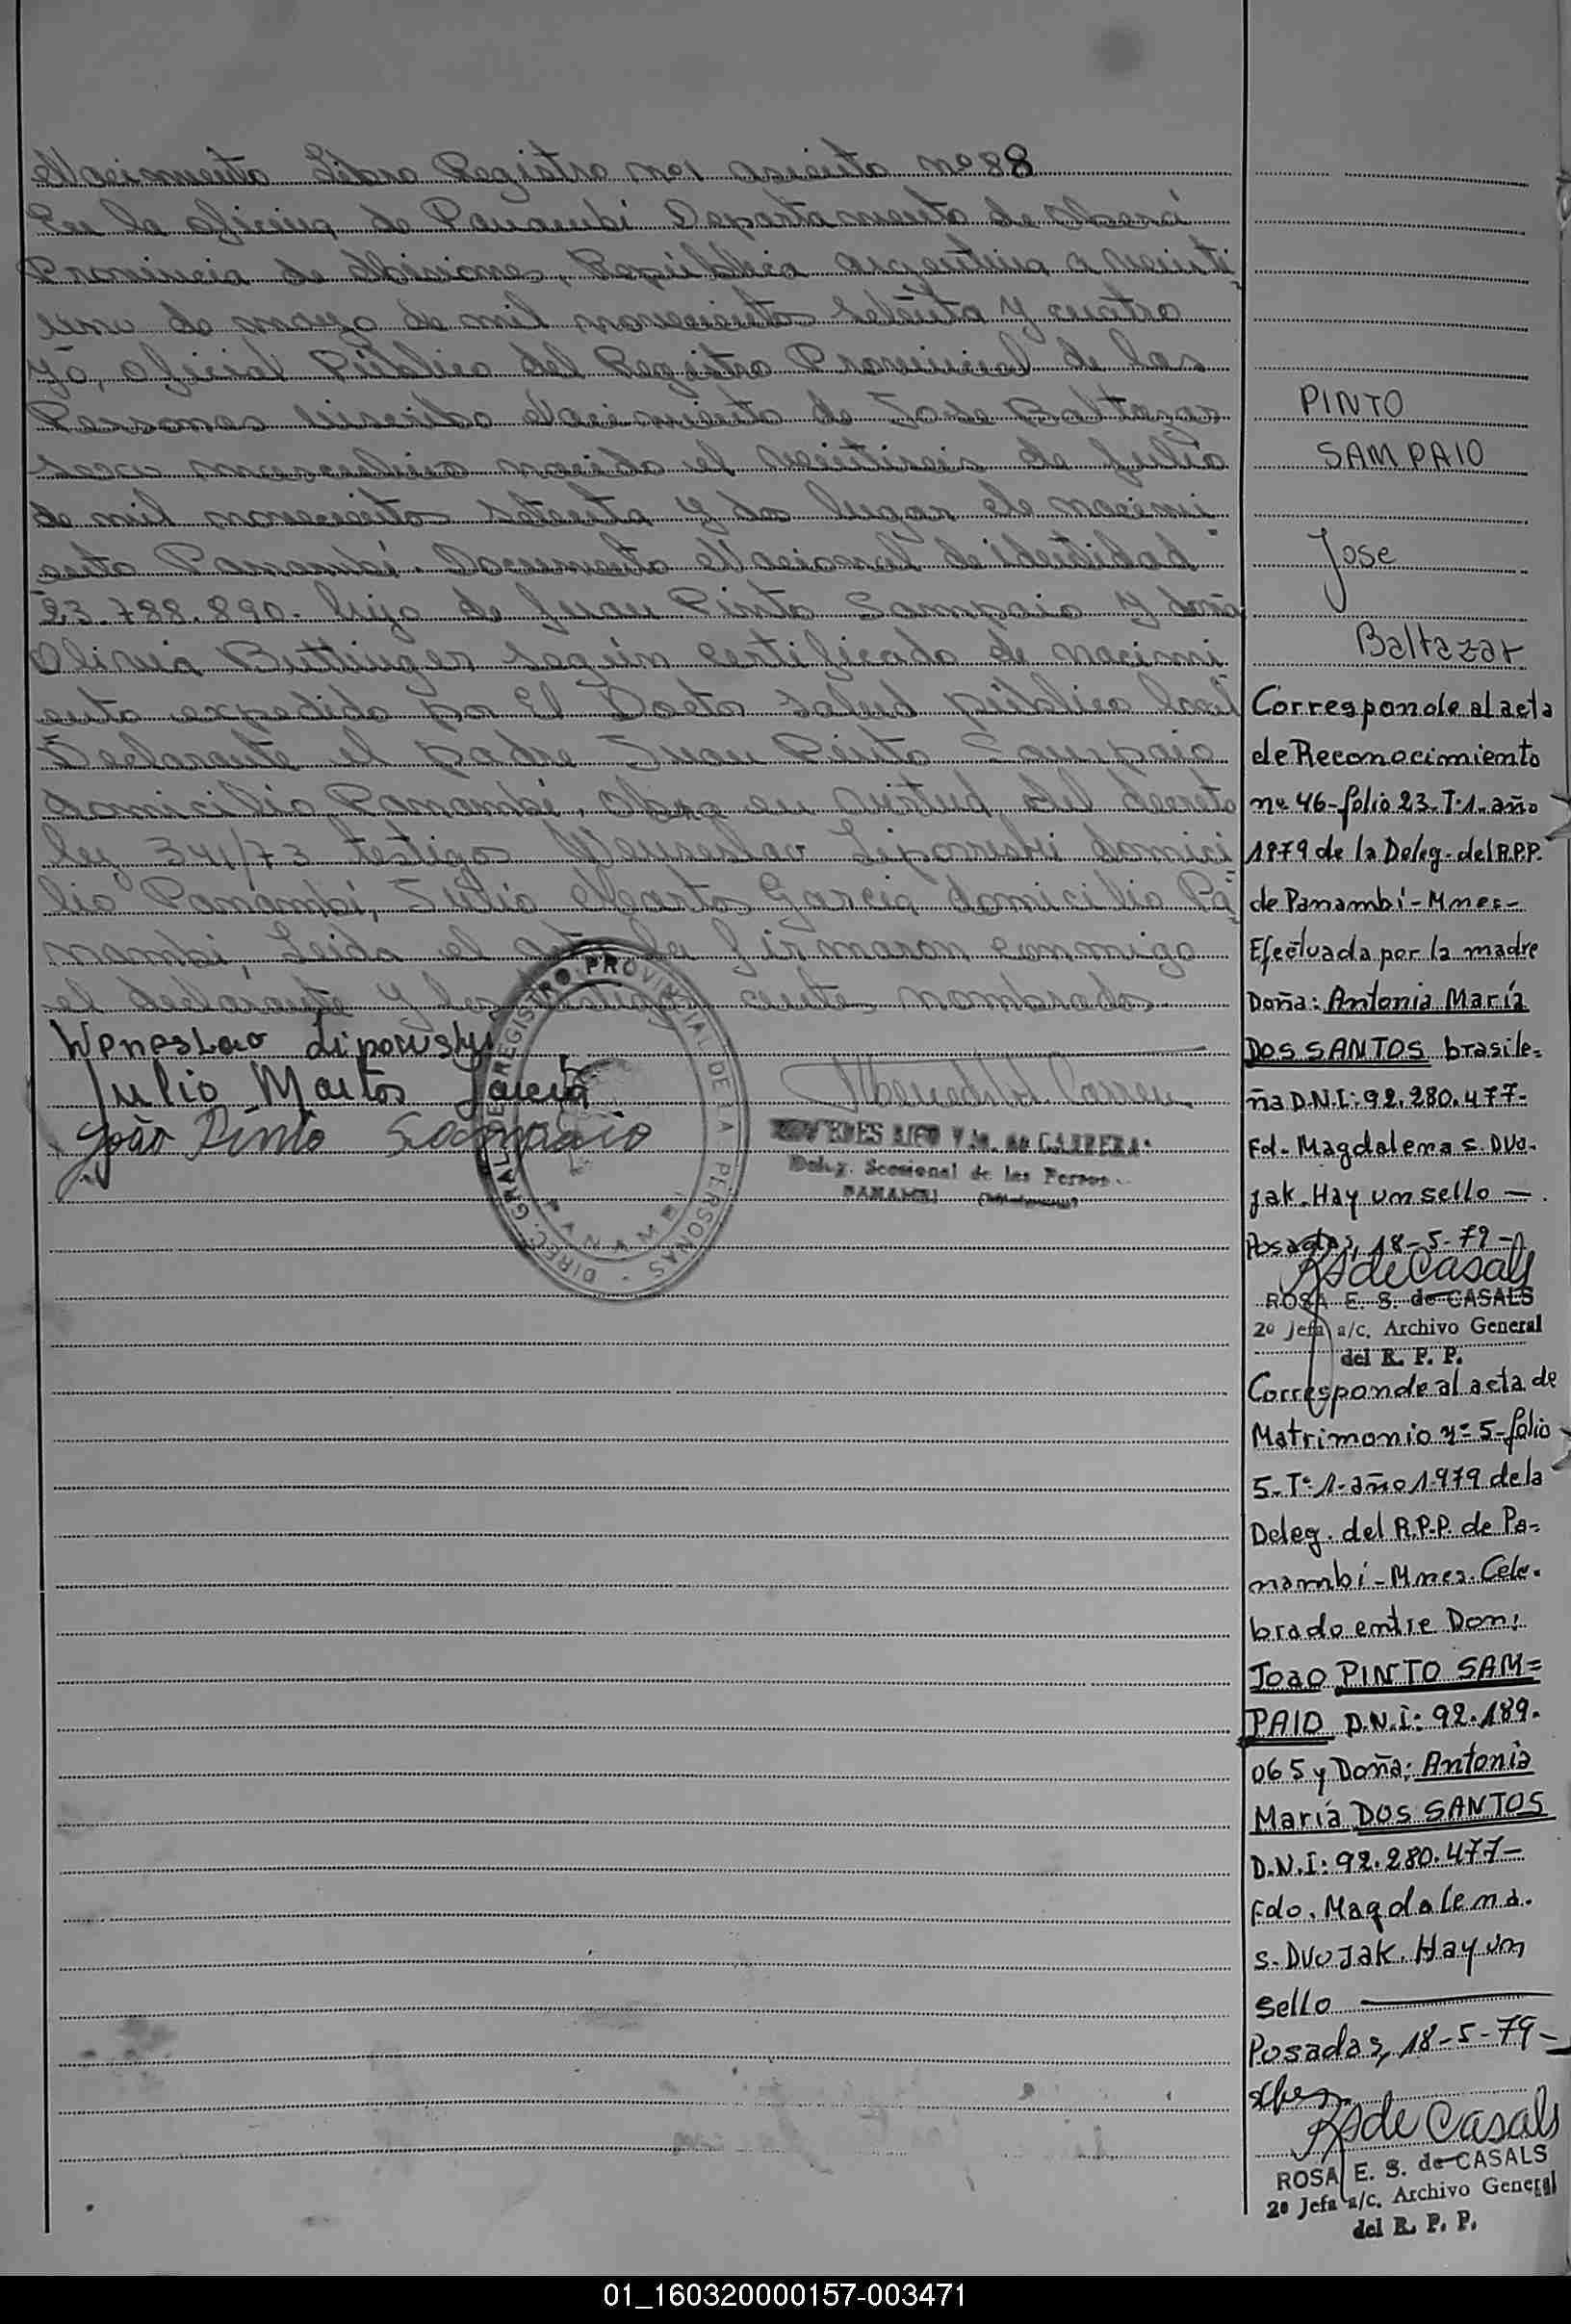 Nacimiento Libro Registro nº1 asiento nº 88
En la oficina de Panambi Departamento de Oberá
Provincia de Misiones, República argentina a veinti
uno de mayo de mil novecientos setenta y cuatro
Yo, oficial Público del Registro Provincial de las
Personas inscribo Nacimiento de Jose Baltazar
sexo masculino nacido el veintiseis de julio
de mil novecientos setenta y dos lugar de nacimi
ento Panambi. Documento Nacional de identidad
23.788.890. hijo de Juan Pinto Sampaio y doña
Buttinger según certificado de nacimi
ento expedido por El Doctor salud pública local
Declarante el padre Juan Pinto Sampaio
domicilio Panambi, en virtud del decreto
ley 341/73 testigos Wenceslao Liposuski domici
lio Panambi, Julio Martos Garcia domicilio Pa
nambi, Leida el acta la firmaron conmigo
el declarante y los testigos antes nombrados.
Weneslao Liposusky
Julio Martos Garcia
João Pinto Sampaio
DIREC. GRAL. DE REGISTRO PROVINCIAL DE LA PERSONAS - PANAMBI
de CARRERA
Deleg. Seccional de las Person.
PANAMBI (Misiones)
PINTO
SAMPAIO
Jose
Baltazar
Corresponde al acta
de Reconocimiento
nº 46-folio 23-T.1-año
1979 de la Deleg. del R.P.P.
de Panambí-Mnes-
Efectuada por la madre
Doña: Antonia María
DOS SANTOS brasile=
ña D.N.I: 92.280.477-
Fd. Magdalena S. Dvo-
jak. Hay un sello —
Posadas, 18-5-79-
RS de Casals
ROSA E. S. de CASALS
2º Jefa a/c. Archivo General
del R. P. P.
Corresponde al acta de
Matrimonio nº 5-folio
5-Tº 1-año 1979 de la
Deleg. del R.P.P. de Pa-
nambí-Mnes. Cele-
brado entre Don:
Joao PINTO SAM=
PAIO D.N.I: 92.189.
065 y Doña: Antonia
María DOS SANTOS
D.N.I: 92.280.477-
Fdo. Magdalena.
S. Dvojak. Hay un
sello —
Posadas, 18-5-79-
RS de Casals
ROSA E. S. de CASALS
2º Jefa a/c. Archivo General
del R. P. P.
01_160320000157-003471